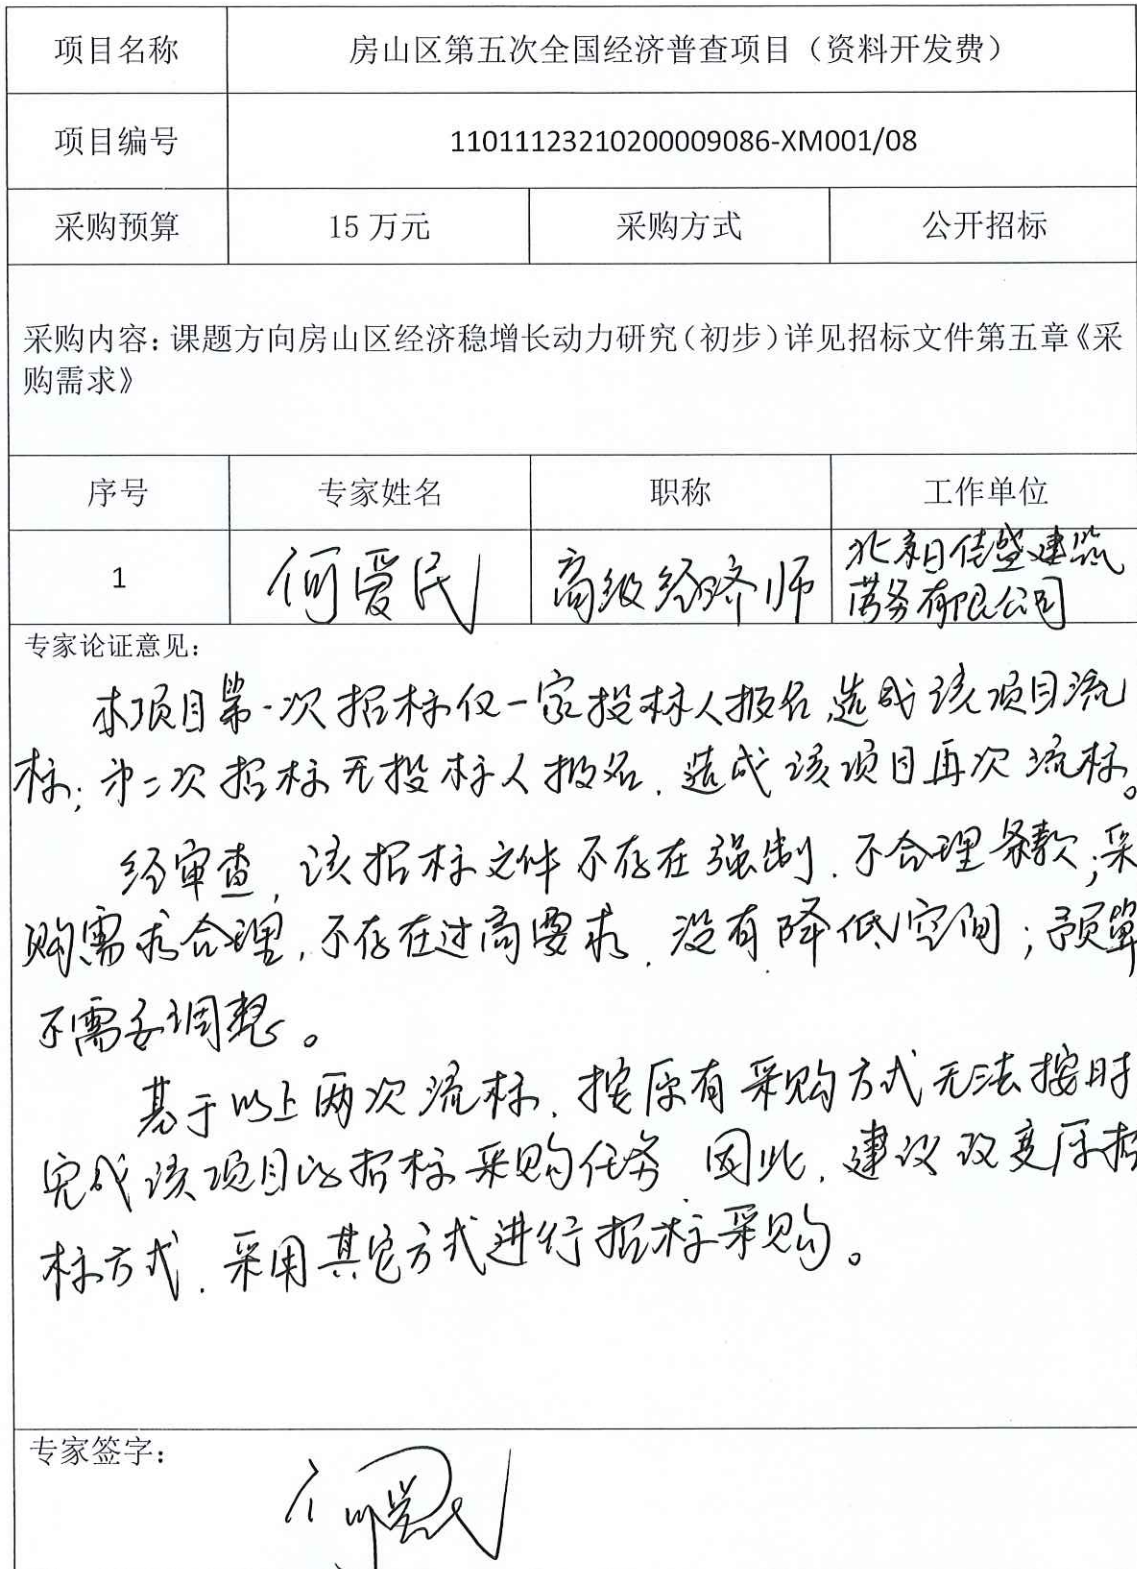 项目名称 房山区第五次全国经济普查项目（资料开发费）
项目编号 11011123210200009086-XM001/08
采购预算 15万元 采购方式 公开招标
采购内容：课题方向房山区经济稳增长动力研究（初步）详见招标文件第五章《采
购需求》
序号 专家姓名 职称 工作单位
1 何爱民 高级经济师 北京日佳盛建筑
劳务有限公司
专家论证意见：
本项目第一次招标仅一家投标人报名，造成该项目流
标；第二次招标无投标人报名，造成该项目再次流标。
经审查，该招标文件不存在强制、不合理条款；采
购需求合理，不存在过高要求，没有降低空间；预算
不需要调整。
基于以上两次流标，按原有采购方式无法按时
完成该项目的招标采购任务 因此，建议改变原招
标方式，采用其它方式进行招标采购。
专家签字：
何爱民